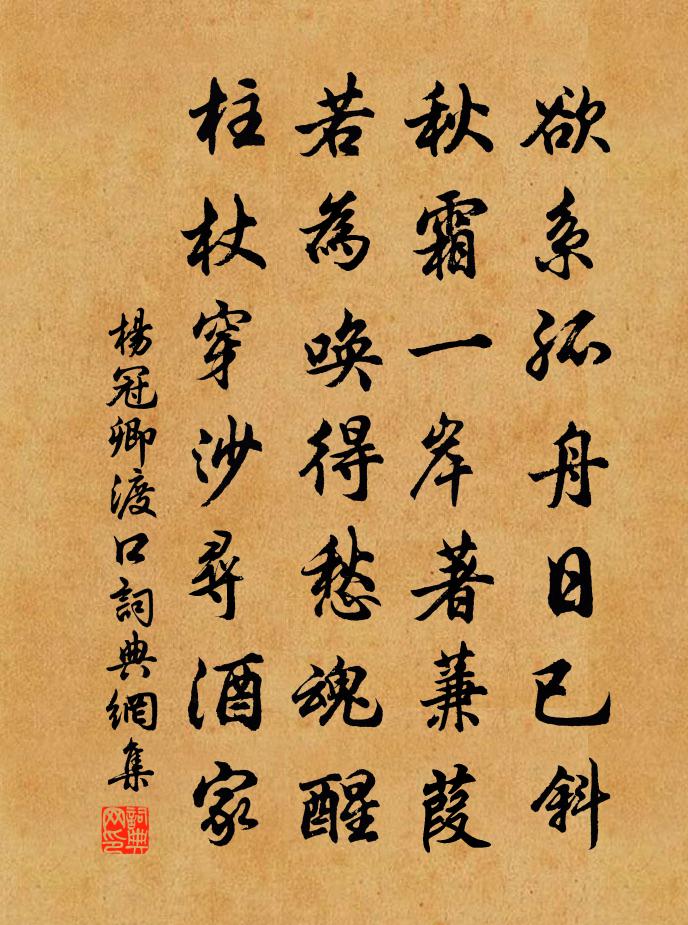 欲系孤舟日已斜
秋霜一岸著蒹葭
若為喚得愁魂醒
柱杖穿沙尋酒家
楊冠卿渡口詞典網集
詞典网印